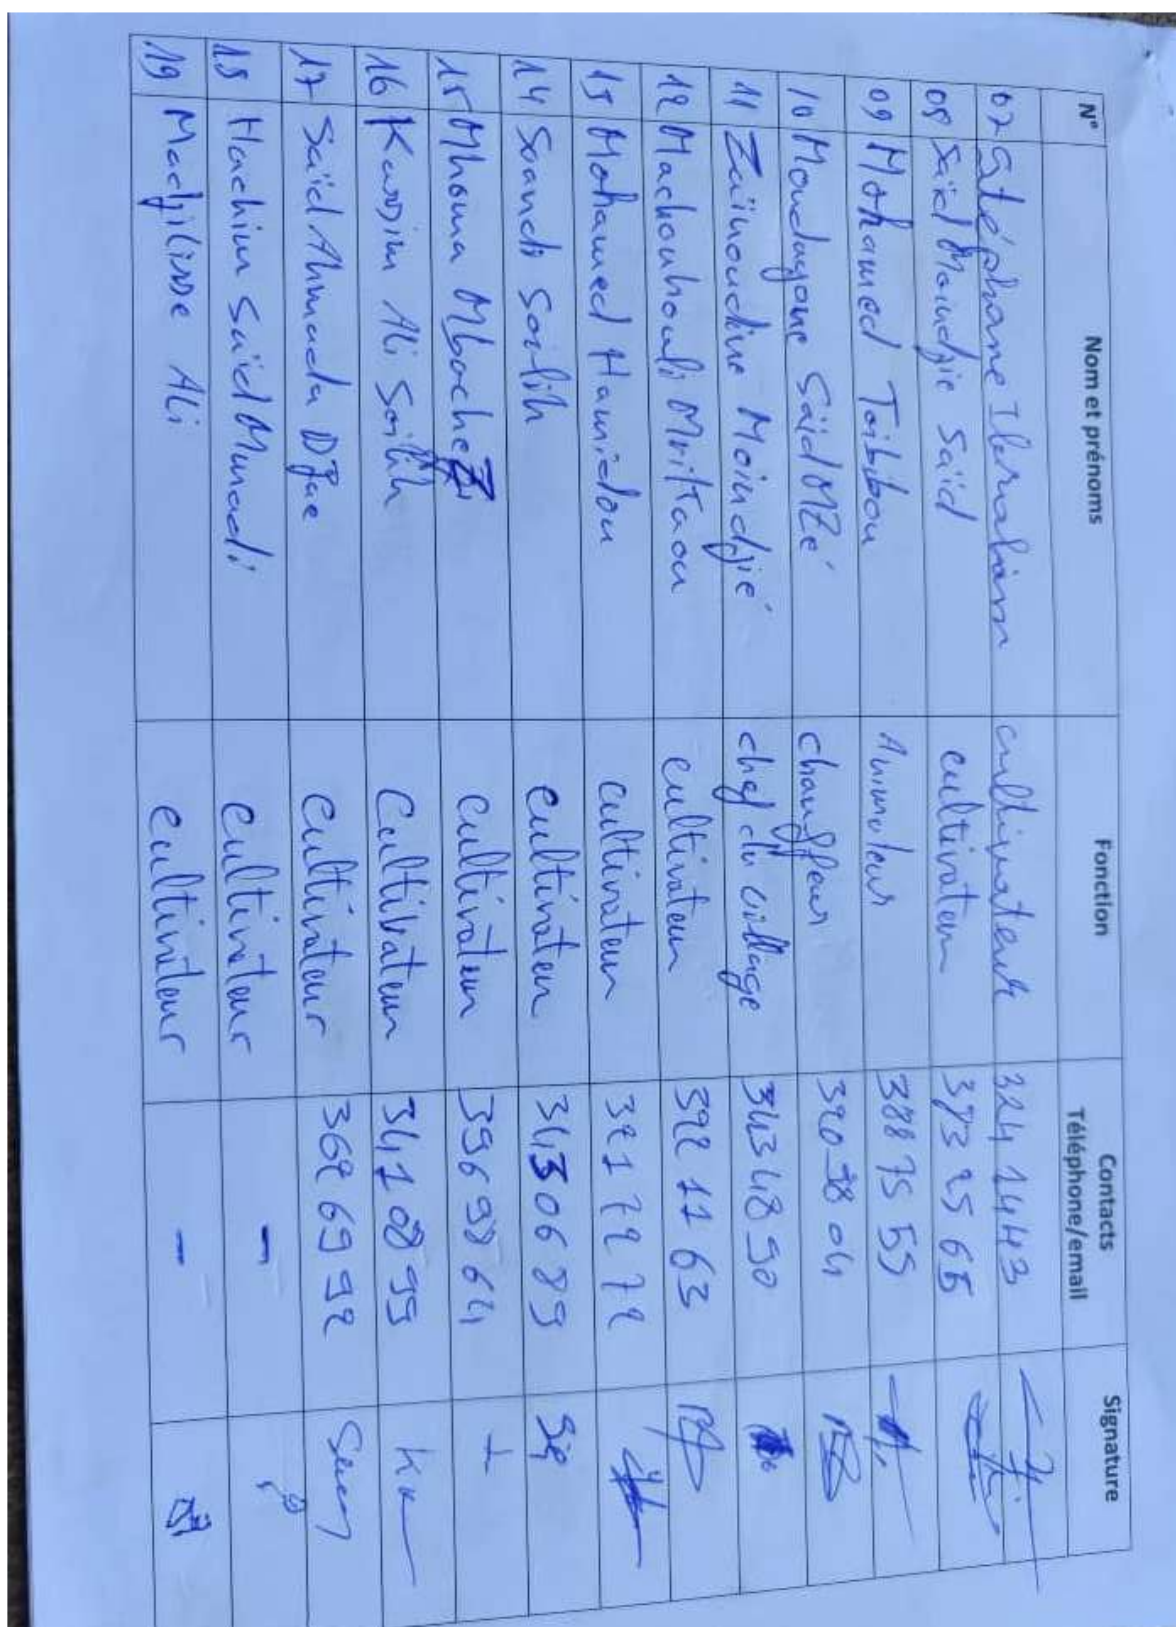 N° Nom et prénoms Fonction Contacts Téléphone/email Signature
07 Stéphane Ibrahim cultivateur 324 1443
08 Saïd Moindjie Saïd cultivateur 373 25 65
09 Mohamed Toibibou Animateur 388 75 59
10 Moudayane Saïd MZé chauffeur 320 38 04
11 Zaïnoudine Moindjié chef du village 343 48 90
12 Machouhouli Mritaou cultivateur 392 11 63
13 Mohamed Hamidou cultivateur 321 72 72
14 Soandi Soilih cultivateur 343 06 89
15 Mhoma Mbache cultivateur 396 98 64
16 Kassim Ali Soilih Cultivateur 341 08 99
17 Saïd Ahmada Djae cultivateur 362 69 92
18 Hachim Saïd Mmadi cultivateur -
19 Madjilisse Ali cultivateur -